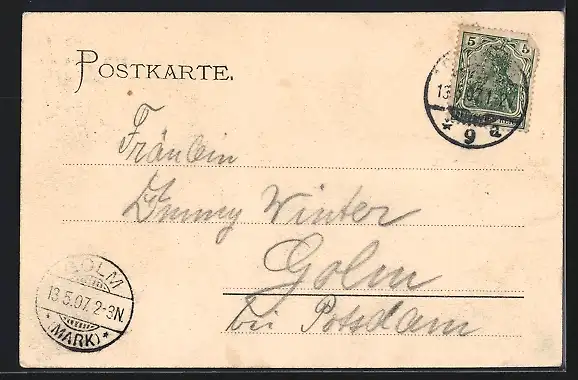 POSTKARTE.
5 5
13.5.07.
* 9 a
Fräulein
Emmy Winter
Golm
bei Potsdam
GOLM
13.5.07. 2-3N.
* (MARK) *